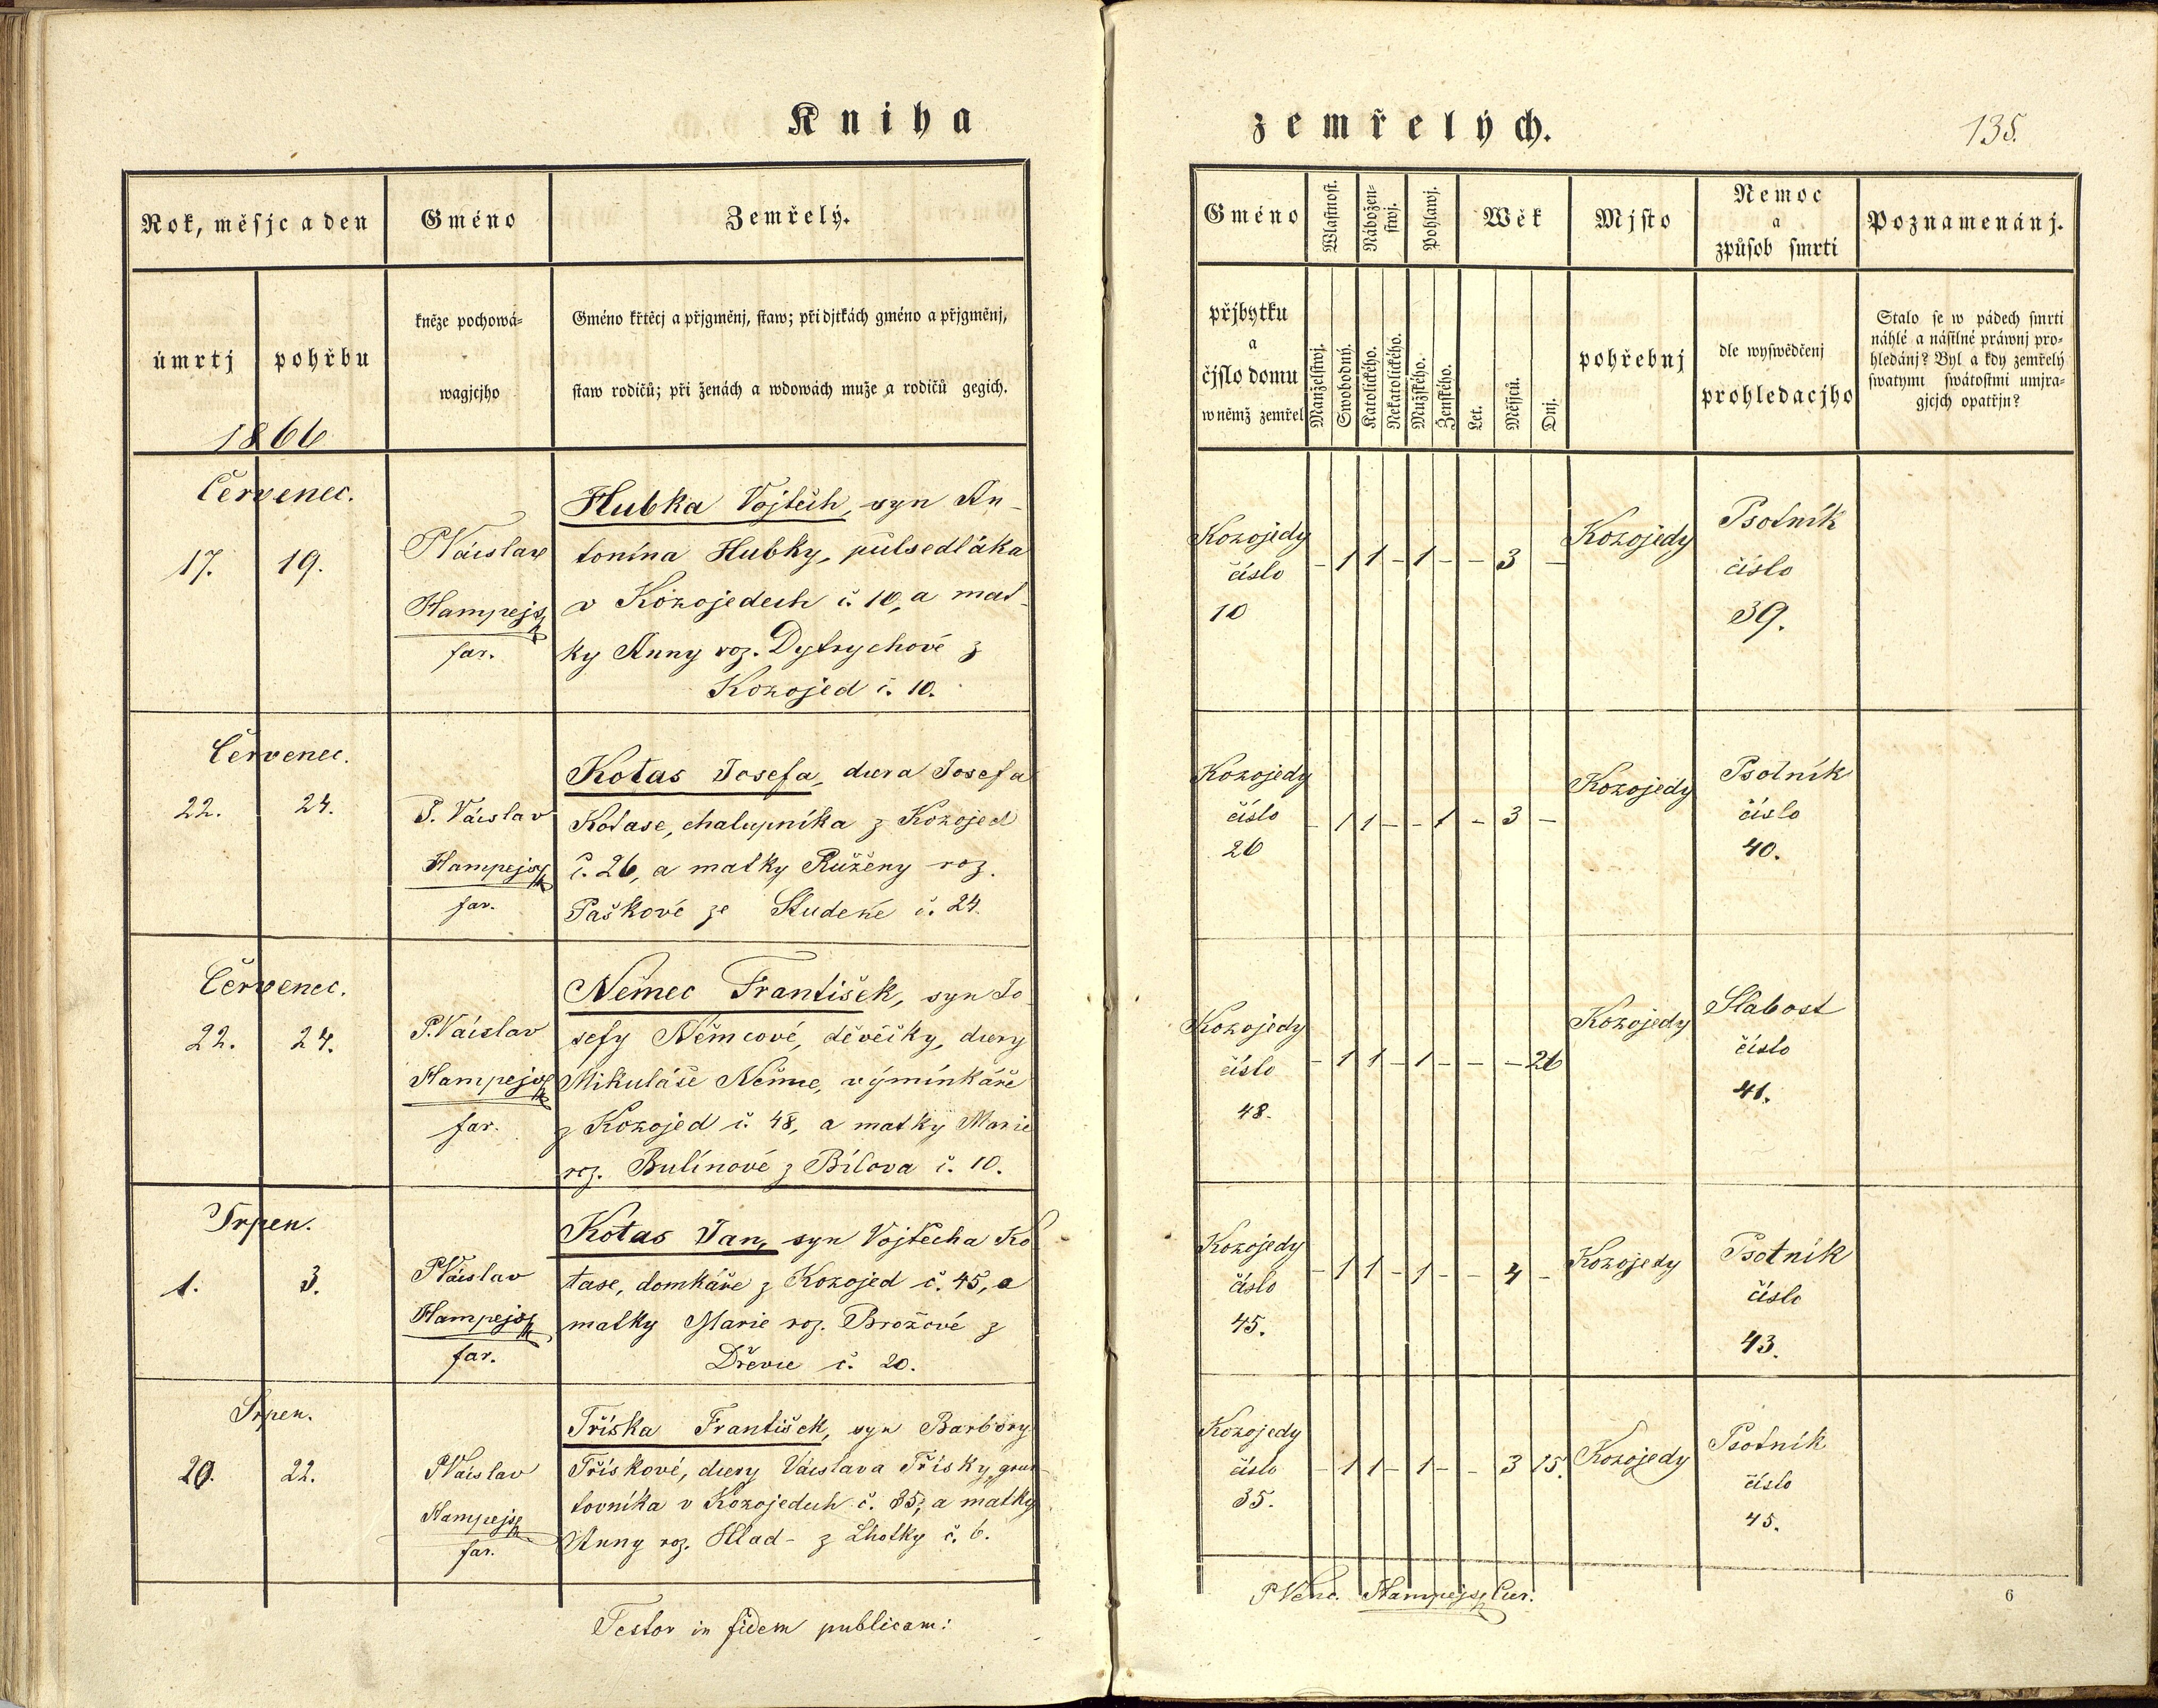 Kniha
zemřelých.
135.
Rok, měsjc a den
Gméno
Zemřelý.
úmrtj
pohřbu
kněze pochowá-
wagjcjho
Gméno křtěcj a přjgměnj, staw; při djtkách gméno a přjgměnj,
staw rodičů; při ženách a wdowách muže a rodičů gegich.
1866
Gméno
Wlastnost.
Nábožen-
stwj.
Pohlawj.
Wěk
Mjsto
Nemoc
a
způsob smrti
Poznamenánj.
přjbytku
a
čjslo domu
w němž zemřel
Manželstwj.
Swobodný.
Katolického.
Nekatolického.
Mužského.
Ženského.
Let.
Měsjců.
Dnj.
pohřebnj
dle wyswědčenj
prohledacjho
Stalo se w pádech smrti
náhlé a násilné práwnj pro-
hledánj? Byl a kdy zemřelý
swatými swátostmi umjra-
gjcjch opatřjn?
Červenec.
17. 19.
P Václav
Hampejs
far.
Hubka Vojtěch, syn An-
tonína Hubky, půlsedláka
v Kozojedech č. 10, a mat-
ky Anny roz. Dytrychové z
Kozojed č. 10.
Kozojedy
číslo
10
- 1 1 - 1 - - 3 -
Kozojedy
Psotník
číslo
39.
Červenec.
22. 24.
P. Václav
Hampejs
far.
Kotas Josefa, dcera Josefa
Kotase, chalupníka z Kozojed
č. 26, a matky Růženy roz.
Paškové ze Studené č. 24.
Kozojedy
číslo
26
- 1 1 - - 1 - 3 -
Kozojedy
Psotník
číslo
40.
Červenec.
22. 24.
P. Václav
Hampejs
far.
Němec František, syn Jo
sefy Němcové, děvečky, dcery
Mikuláše Němce, výminkáře
z Kozojed č. 48, a matky Marie
roz. Bulínové z Bílova č. 10.
Kozojedy
číslo
48.
- 1 1 - 1 - - - 26
Kozojedy
Slabost
číslo
41.
Srpen.
1. 3.
P Václav
Hampejs
far.
Kotas Jan, syn Vojtěcha Ko
tase, domkáře z Kozojed č. 45, a
matky Marie roz. Brožové z
Dřevce č. 20.
Kozojedy
číslo
45.
- 1 1 - 1 - - 4 -
Kozojedy
Psotník
číslo
43.
Srpen.
20. 22.
P Václav
Hampejs
far.
Tříska František, syn Barbory
Třískové, dcery Václava Třísky, grun
tovníka v Kozojedech č. 35, a matky
Anny roz. Hlad- z Lhotky č. 6.
Kozojedy
číslo
35.
- 1 1 - 1 - - 3 15.
Kozojedy
Psotník
číslo
45.
Testor in fidem publicam:
P Venc. Hampejs Cur.
6